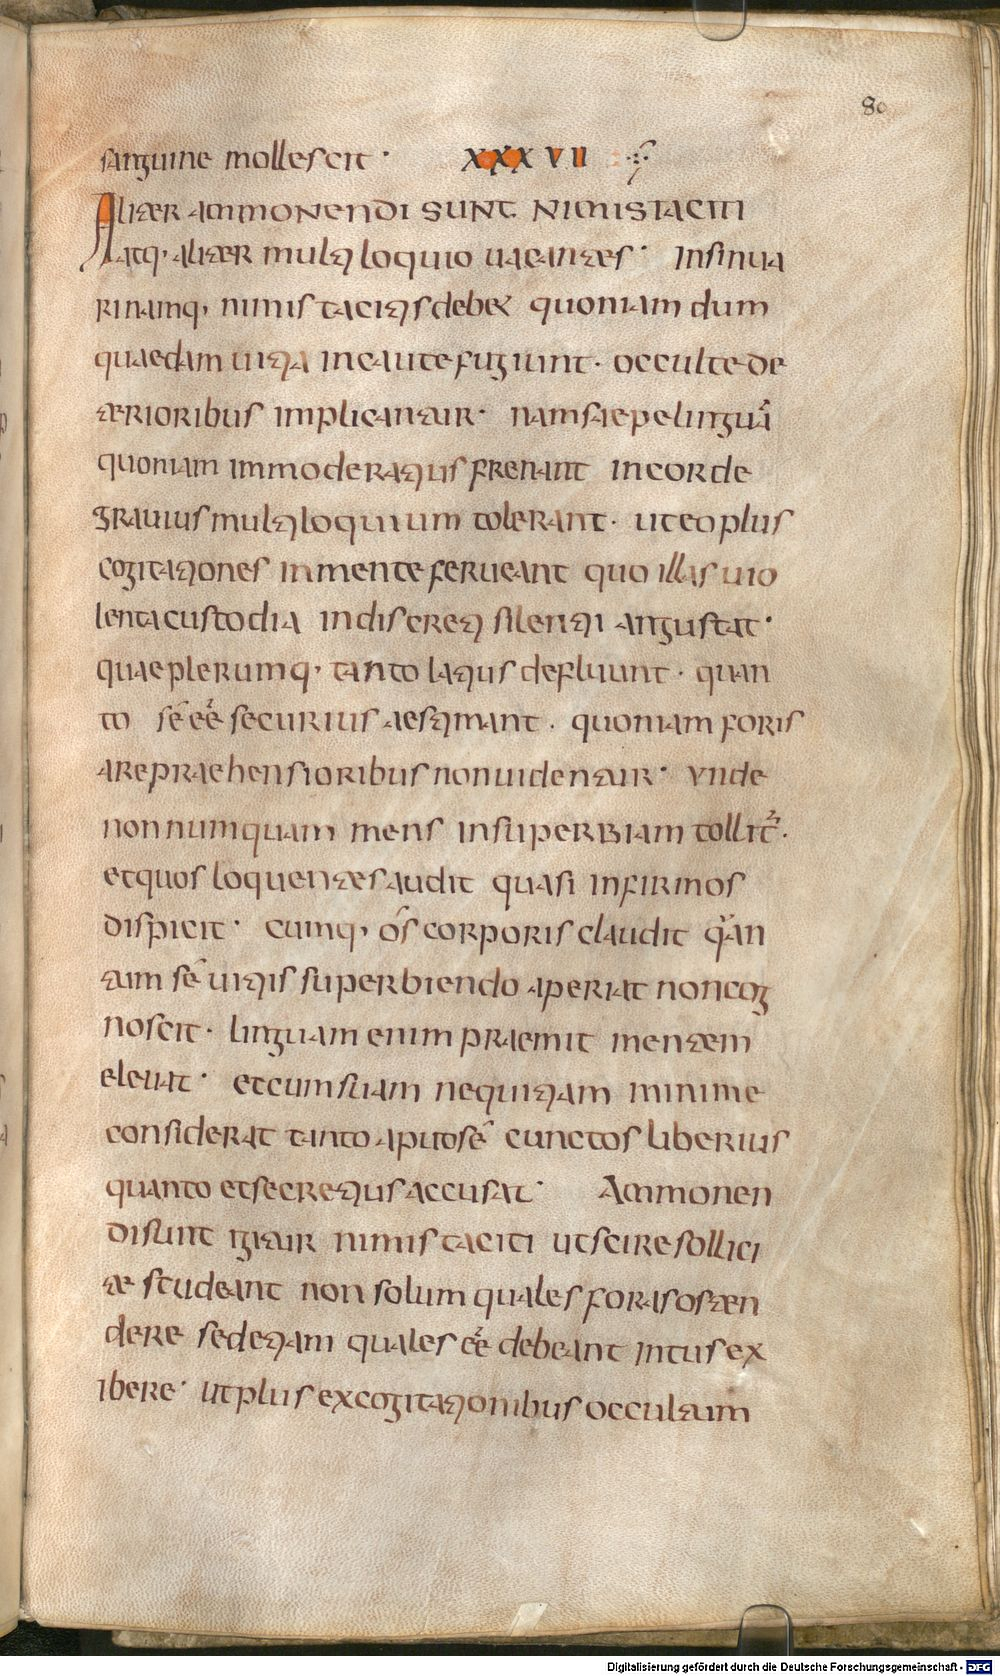 80
sanguine mollescit · XXXVII
Aliter ammonendi sunt nimis taciti
atq· aliter multiloquio uacantes · insinua
ri namq· nimis tacitis debet quoniam dum
quaedam uitia incaute fugiunt · occulte de
terioribus implicantur · nam saepe linguā
quoniam immoderatius frenant in corde
grauius multiloquium tolerant · ut eo plus
cogitationes in mente ferueant quo illas uio
lenta custodia indiscreti silentii angustat ·
quae plerumq· tanto latius defluunt · quan
to sē eē securius aestimant · quoniam foris
a repraehensioribus non uidentur · unde
non numquam mens in superbiam tollit᷑ ·
et quos loquentes audit quasi infirmos
dispicit · cumq· ōs corporis claudit qᵘan
tum sē uitiis superbiendo aperiat non cog
noscit · linguam enim praemit mentem
eleuat · et cum suam nequitiam minime
considerat tanto aput sē cunctos liberius
quanto et secretius accusat · Ammonen
di sunt igitur nimis taciti ut scire sollici
te studeant non solum quales foras osten
dere sed etiam quales eē debeant intus ex
ibere · ut plus ex cogitationibus occultum
Digitalisierung gefördert durch die Deutsche Forschungsgemeinschaft - DFG